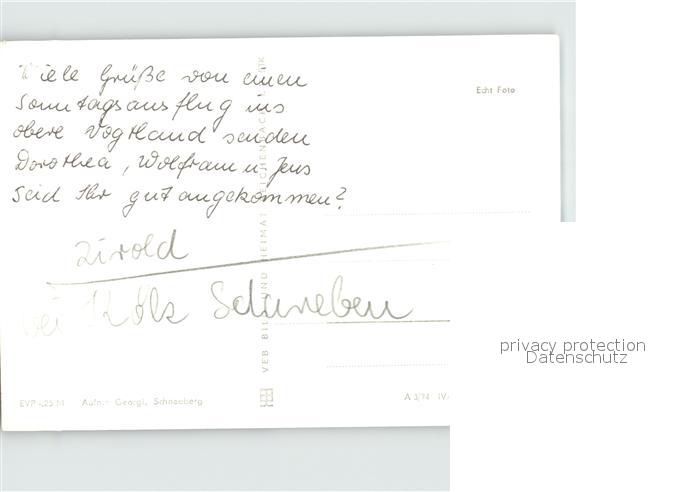 Viele Grüße von einen
Sonntagsausflug ins
obere Vogtland senden
Dorothea, Wolfram u Jens
Seid Ihr gut angekommen?
Echt Foto
zirold
bei Kölz Schweben
VEB BILD UND HEIMAT REICHENBACH
EVP -,25 M Aufn.: Georgi, Schneeberg
A 3/74 IV
privacy protection
Datenschutz